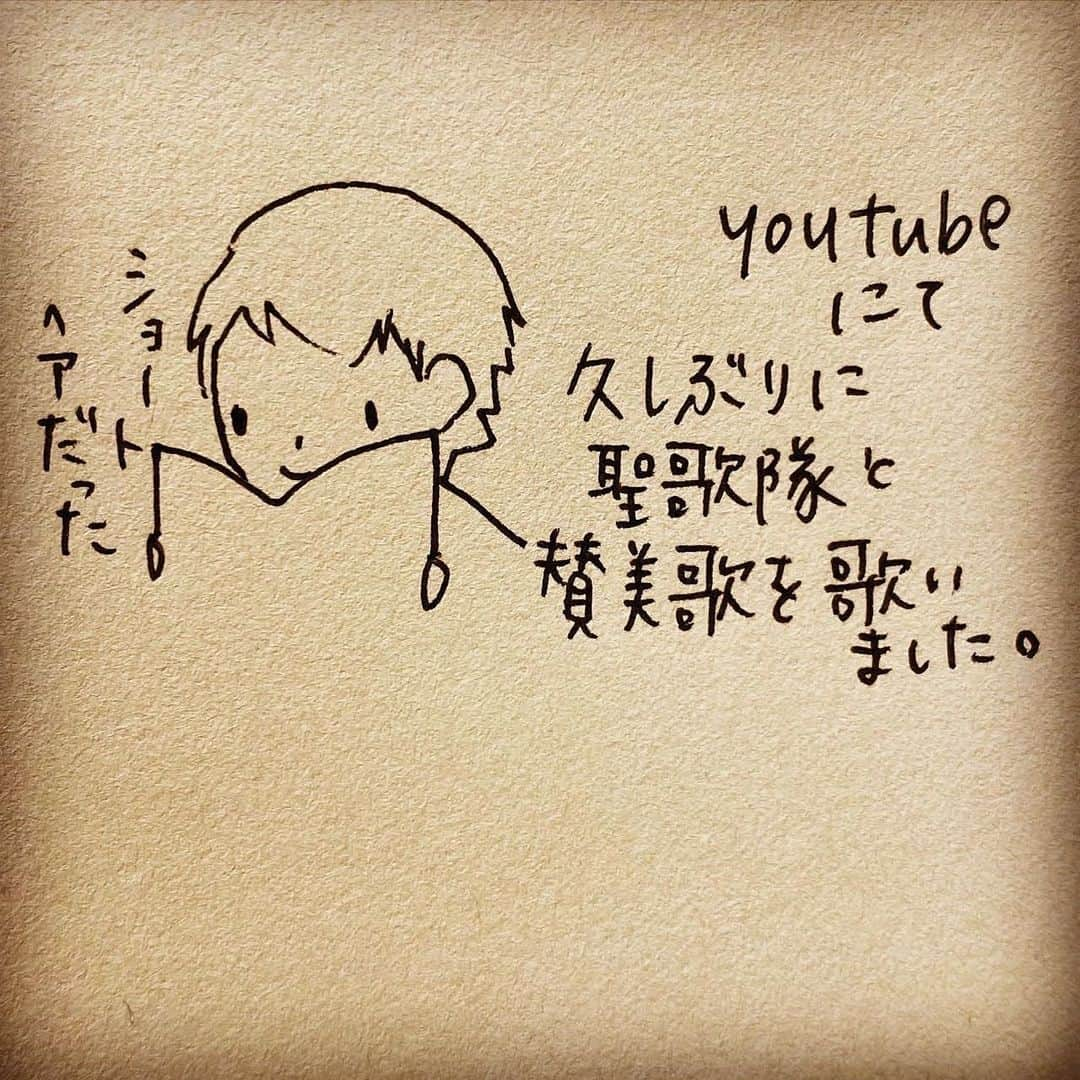 youtube
にて
久しぶりに
聖歌隊と
賛美歌を歌い
ました。
ショート
ヘアだった